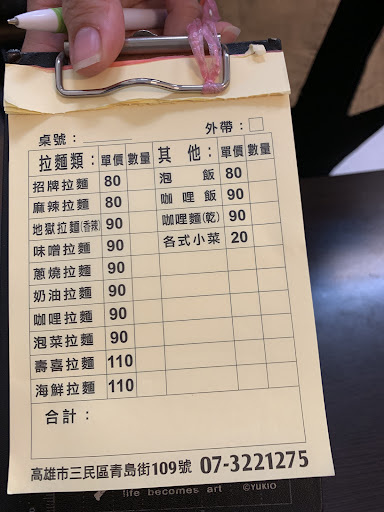 桌號： 外帶：
拉麵類： 單價 數量 其 他： 單價 數量
招牌拉麵 80 泡 飯 80
麻辣拉麵 80 咖 哩 飯 90
地獄拉麵(香辣) 90 咖哩麵(乾) 90
味噌拉麵 90 各式小菜 20
蔥燒拉麵 90
奶油拉麵 90
咖哩拉麵 90
泡菜拉麵 90
壽喜拉麵 110
海鮮拉麵 110
合計：
高雄市三民區青島街109號 07-3221275
life becomes art ©YUKIO